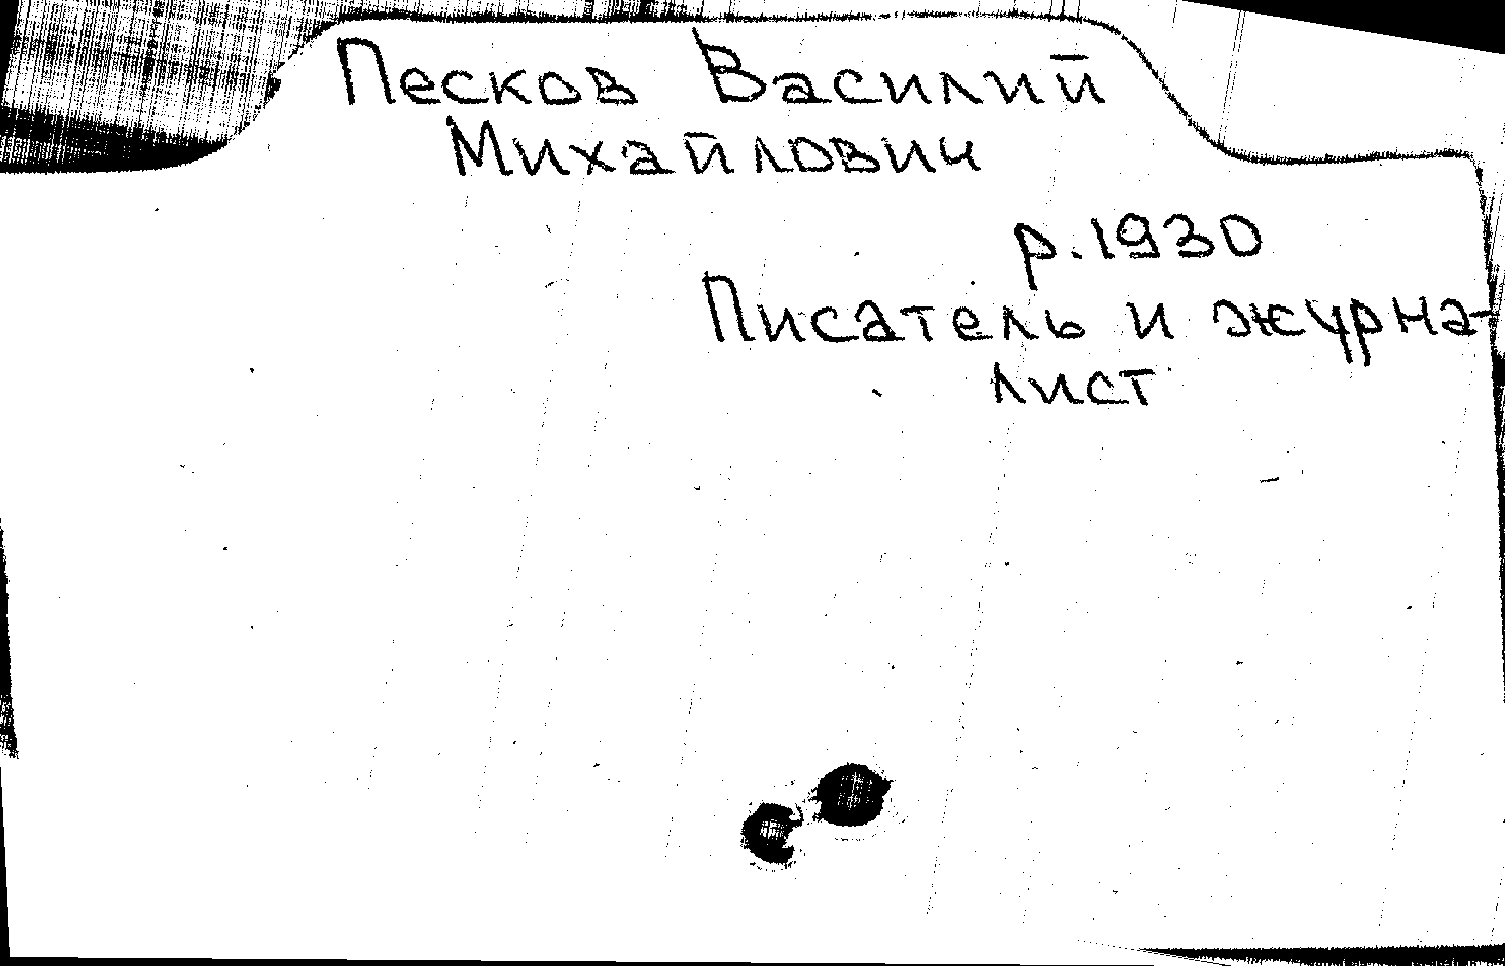 Песков Василий
Михайлович
р. 1930
Писатель и журна-
лист